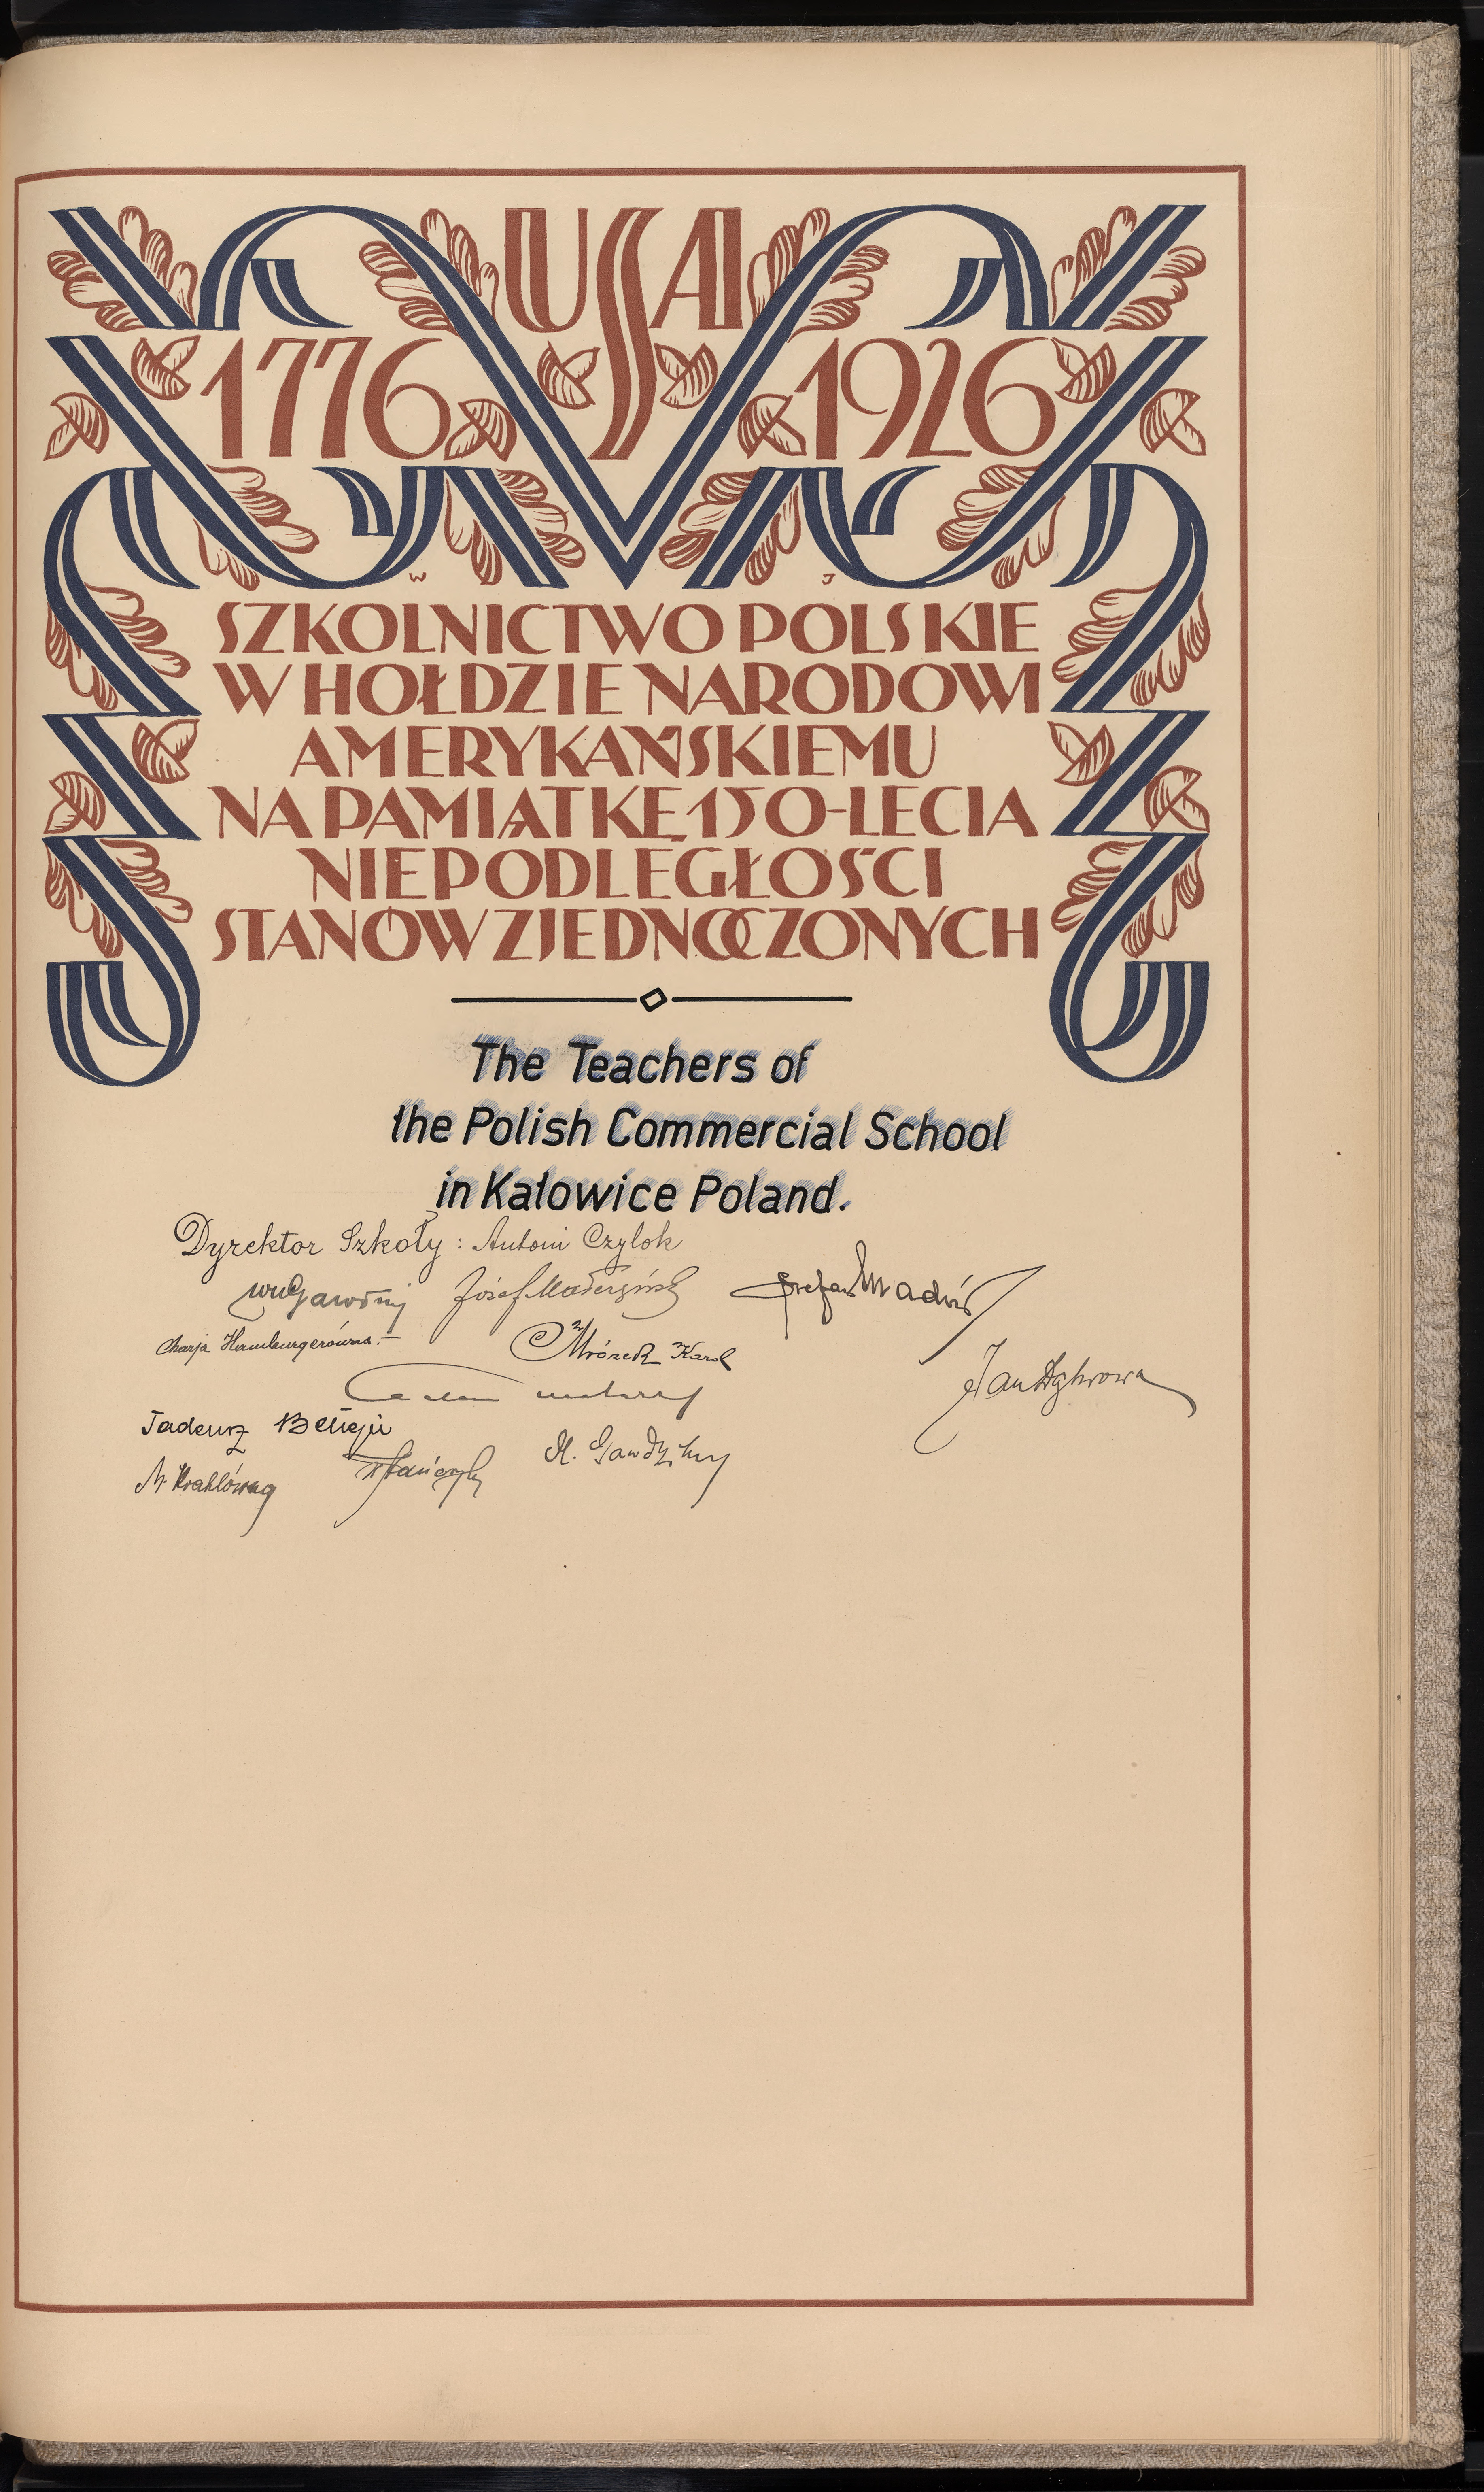 USA
1776 1926
W J
SZKOLNICTWO POLSKIE
W HOŁDZIE NARODOWI
AMERYKAŃSKIEMU
NA PAMIĄTKĘ 150-LECIA
NIEPODLEGŁOŚCI
STANÓW ZJEDNOCZONYCH
The Teachers of
the Polish Commercial School
in Katowice Poland.
Dyrektor Szkoły: Antoni Czylok
Józef Stefan
Hamburgerówna. Mrózek Karol
Jan
Tadeusz